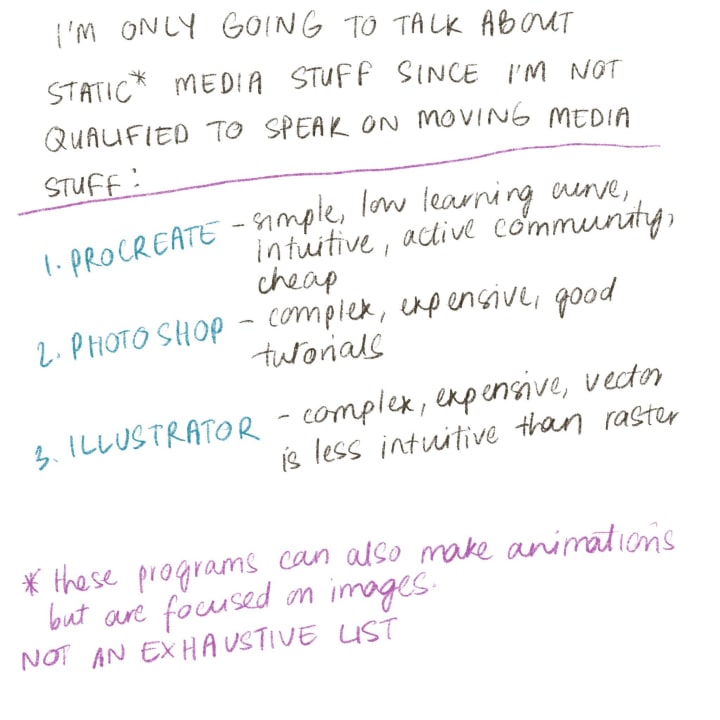 I'M ONLY GOING TO TALK ABOUT
STATIC* MEDIA STUFF SINCE I'M NOT
QUALIFIED TO SPEAK ON MOVING MEDIA
STUFF:
1. PROCREATE - simple, low learning curve,
intuitive, active community,
cheap
2. PHOTOSHOP - complex, expensive, good
tutorials
3. ILLUSTRATOR - complex, expensive, vector
is less intuitive than raster
* these programs can also make animations
but are focused on images.
NOT AN EXHAUSTIVE LIST